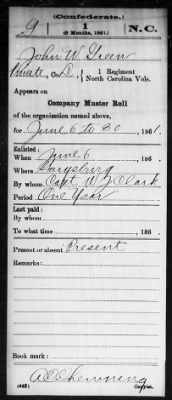 (Confederate.)
9 | 1 | N. C.
(6 Months, 1861.)
John W Green
Private, Co. D, 1 Regiment
North Carolina Vols.
Appears on
Company Muster Roll
of the organization named above,
for June 6 to 30, 1861.
Enlisted:
When June 6, 186 .
Where Garysburg
By whom Capt. W J Clark
Period One Year
Last paid:
By whom
To what time , 186 .
Present or absent Present
Remarks:
Book mark:
(642)
Copyist.